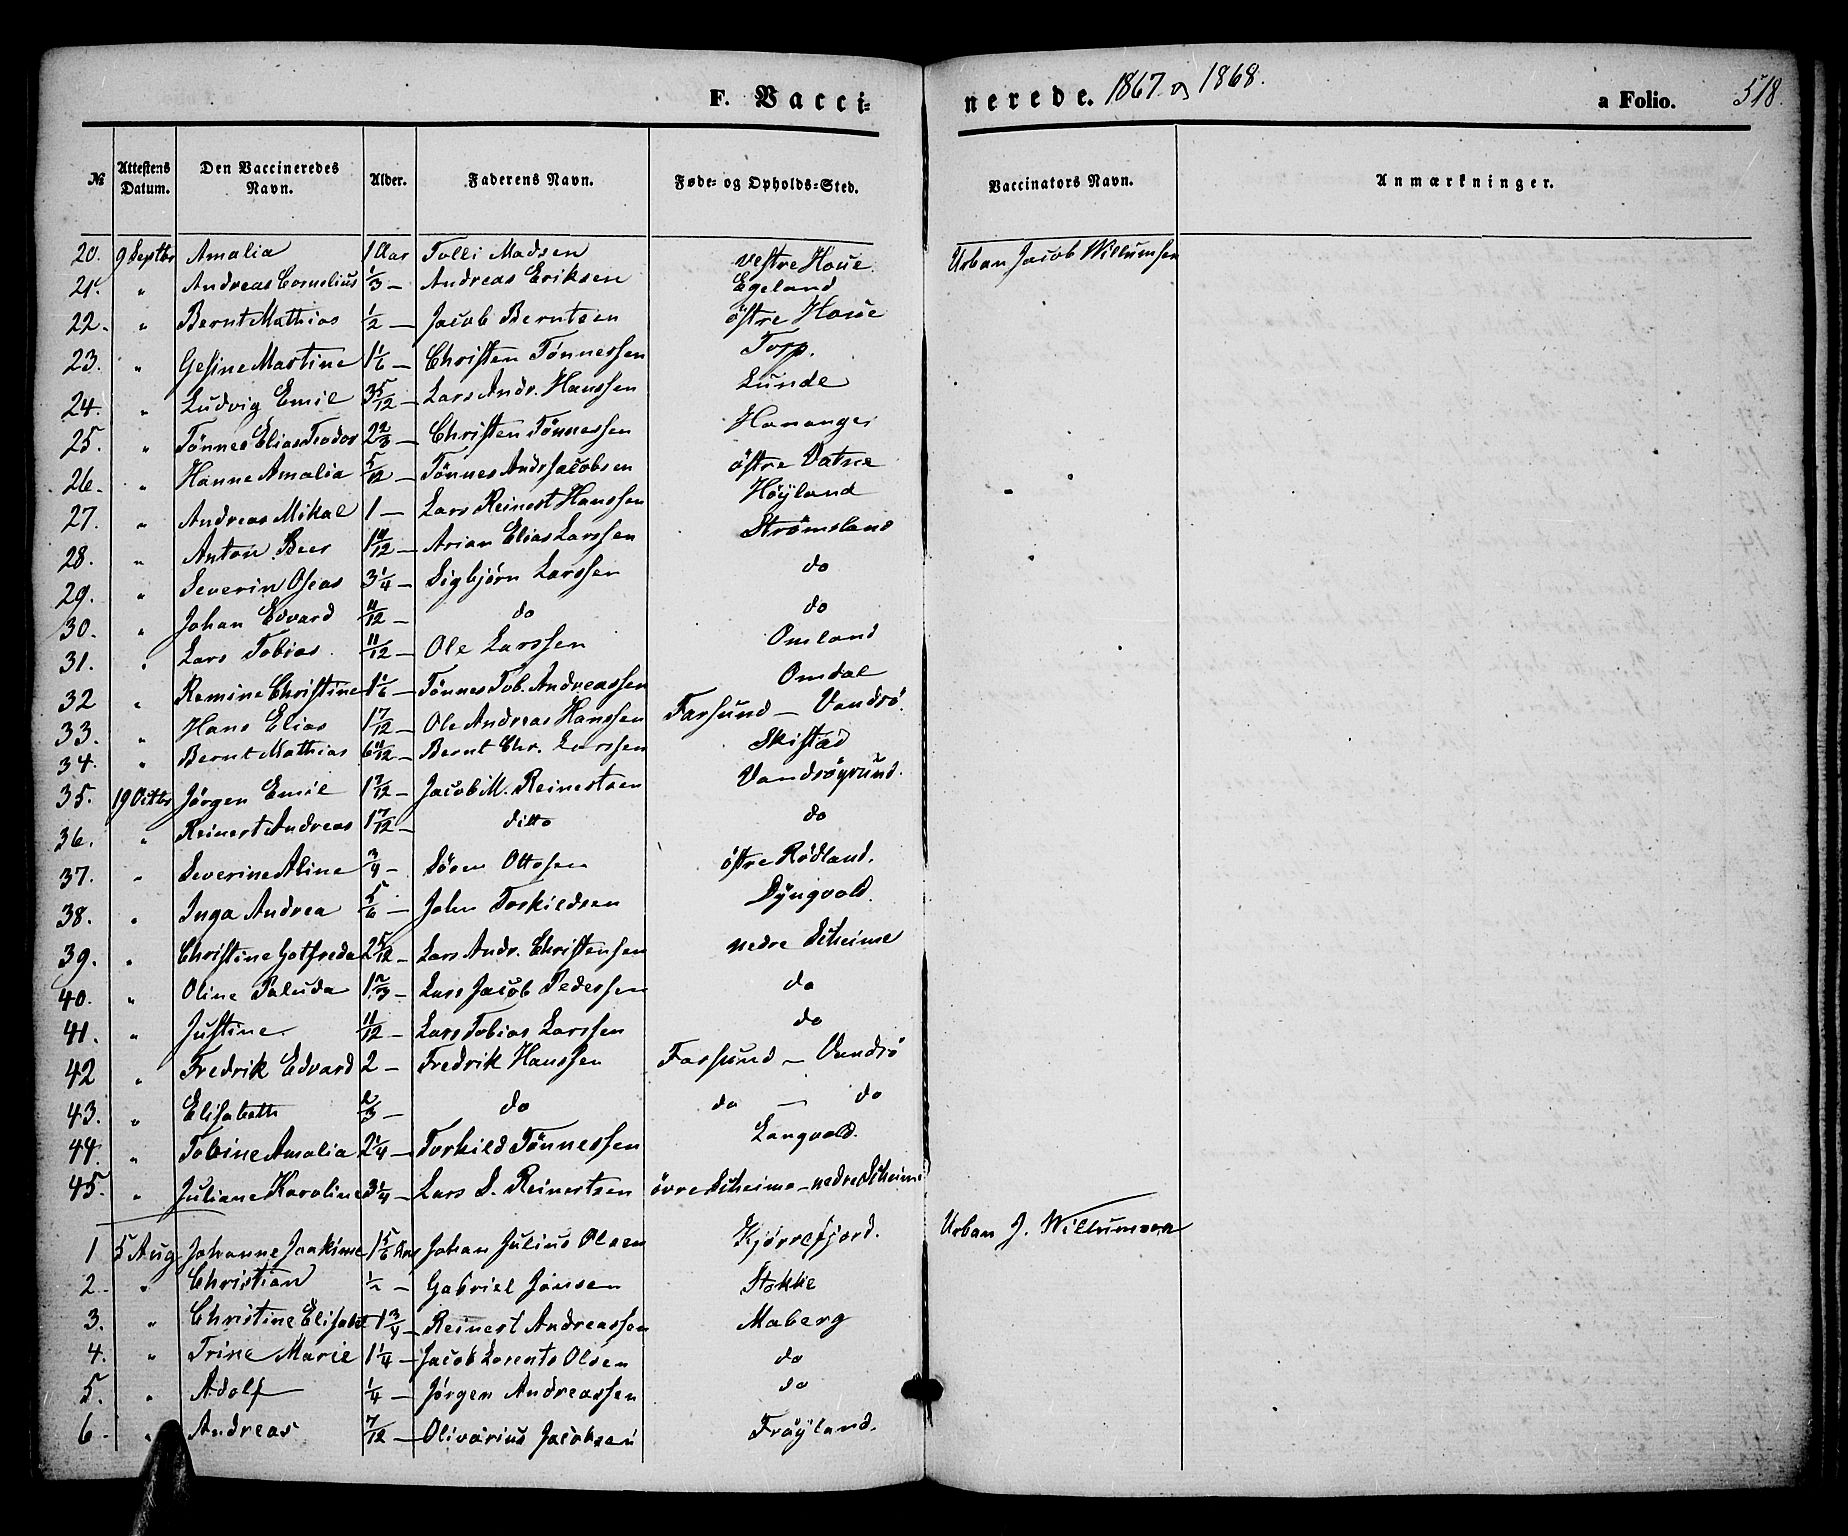 F. Vaccinerede. 1867 og 1868. a Folio. 518.
№ | Attestens Datum. | Den Vaccineredes Navn. | Alder. | Faderens Navn. | Føde- og Opholds-Sted. | Vaccinators Navn. | Anmærkninger.
20. 9 Septbr Amalia 1 Aar Tolli Madsen vestre Houe Urban Jacob Willumsen
21. " Andreas Cornelius 1/3 — Andreas Eriksen Egeland
22. " Bernt Mathias 1/2 — Jacob Berntsen östre Houe
23. " Gesine Martine 1 1/6 — Christen Tönnessen Torp.
24. " Ludvig Emil 3 5/12 — Lars Andr. Hanssen Lunde
25. " Tönnes Elias Teodor 2 2/3 — Christen Tönnessen Hananger
26. " Hanne Amalia 5/12 — Tönnes Andr Jacobsen östre Vatne
27. " Andreas Mikal 1 — Lars Reinert Hanssen Höyland
28. " Anton Beer 1 10/12 — Arian Elias Larssen Strömsland
29. " Severin Oseas 3 1/4 — Sigbjörn Larssen do
30. " Johan Edvard 11/12 — do do
31. " Lars Tobias 11/12 — Ole Larssen Omland
32 " Remine Christine 1 1/6 — Tönnes Tob. Andreassen Omdal
33. " Hans Elias 1 7/12 — Ole Andreas Hanssen Farsund — Vandsö.
34. " Bernt Mathias 6 11/12 — Bernt Chr. Larssen Skistad
35. 19 Octbr Jörgen Emil 1 7/12 — Jacob M. Reinertsen Vandsögrund.
36. " Reinert Andreas 1 7/12 — ditto do
37. " Severine Aline 3/4 — Sören Ottosen östre Rödland.
38. " Inga Andrea 5/6 — John Torkildsen Dyngvold.
39. " Christine Gotfreda 2 5/12 — Lars Andr. Christensen nedre Skeime
40. " Oline Paluda 1 2/3 — Lars Jacob Pedersen do
41. " Justine 11/12 — Lars Tobias Larssen do
42 " Fredrik Edvard 2 — Fredrik Hanssen Farsund — Vandsö
43. " Elisabeth 2/3 — do do — do
44. " Tobine Amalia 2 1/4 — Torkild Tönnessen Langvold.
45. " Juliane Karoline 3 1/4 — Lars S. Reinertsen övre Skeime — nedre Skeime
1 5 Aug Johanne Joakime 1 5/6 Aar Johan Julius Olsen Kjörrefjord. Urban J. Willumsen
2. " Christian 1/2 — Gabriel Jonsen Stokke
3. " " Christine Elisabet 1 3/4 — Reinert Andreassen Maberg
4. " Trine Marie 1 1/4 — Jacob Lorents Olsen do
5. " Adolf 1/4 — Jörgen Andreassen do
6. " Andreas 7/12 — Olivarius Jacobsen Fröyland.